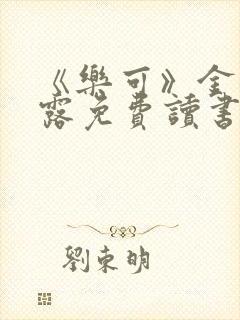 《樂可》全
露免費讀書
劉東明